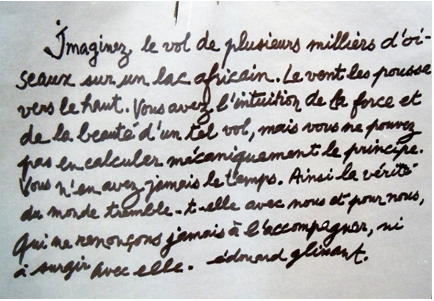 Imaginez le vol de plusieurs milliers d'oi-
seaux sur un lac africain. Le vent les pousse
vers le haut. Vous avez l'intuition de la force et
de la beauté d'un tel vol, mais vous ne pouvez
pas en calculer mécaniquement le principe.
Vous n'en avez jamais le temps. Ainsi la vérité
du monde tremble-t-elle avec nous et pour nous,
qui ne renonçons jamais à l'accompagner, ni
à surgir avec elle. édouard glissant.